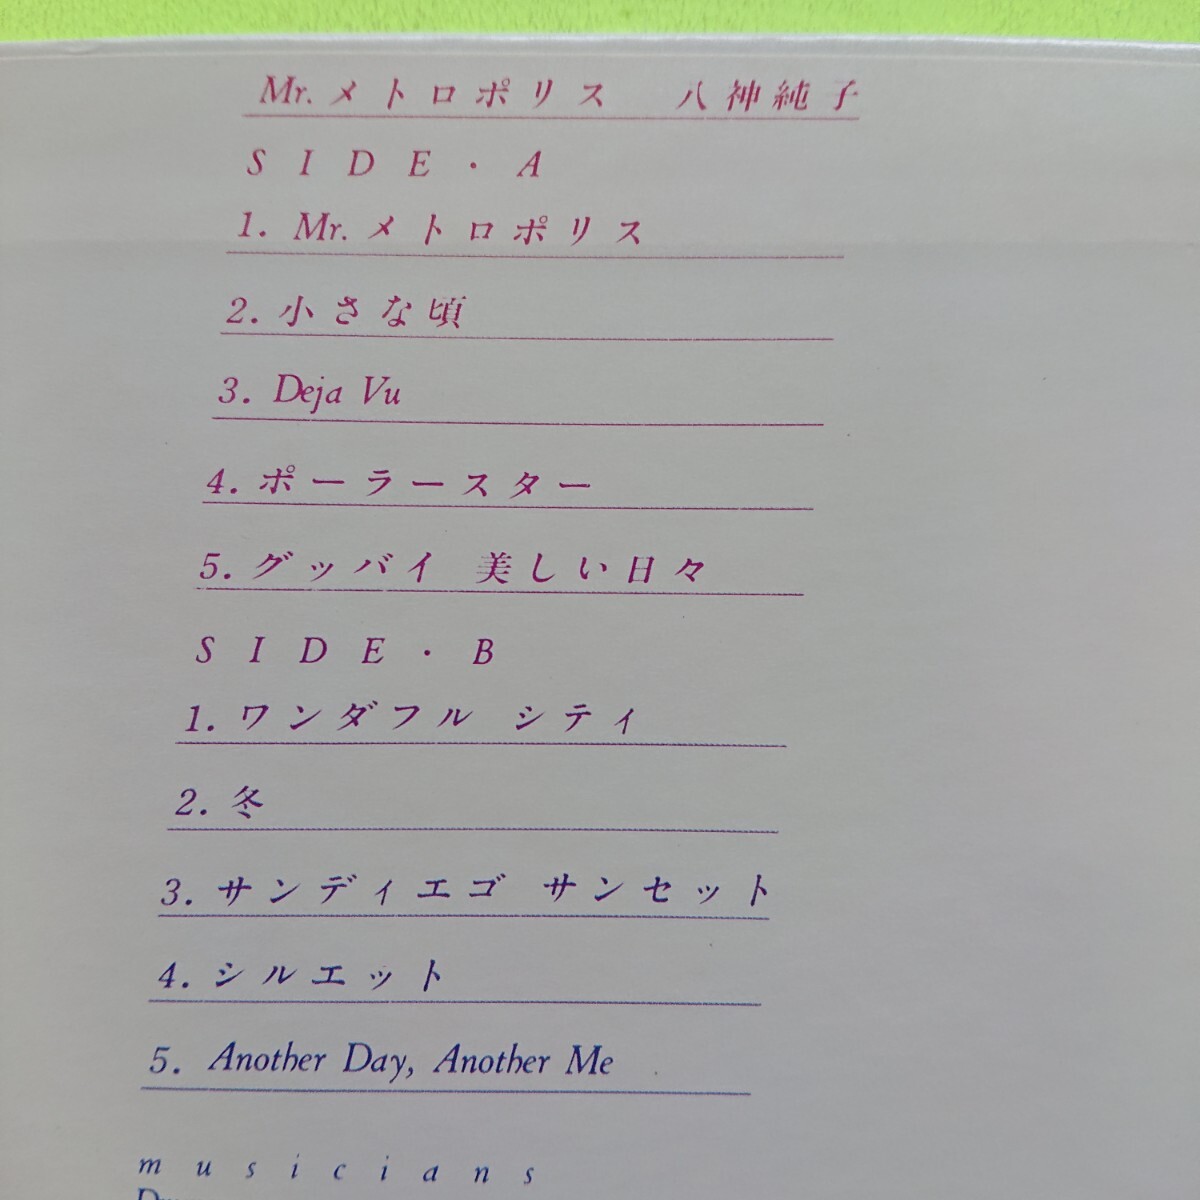 Mr.メトロポリス 八神純子
SIDE・A
1. Mr.メトロポリス
2. 小さな頃
3. Deja Vu
4. ポーラースター
5. グッバイ 美しい日々
SIDE・B
1. ワンダフル シティ
2. 冬
3. サンディエゴ サンセット
4. シルエット
5. Another Day, Another Me
musicians